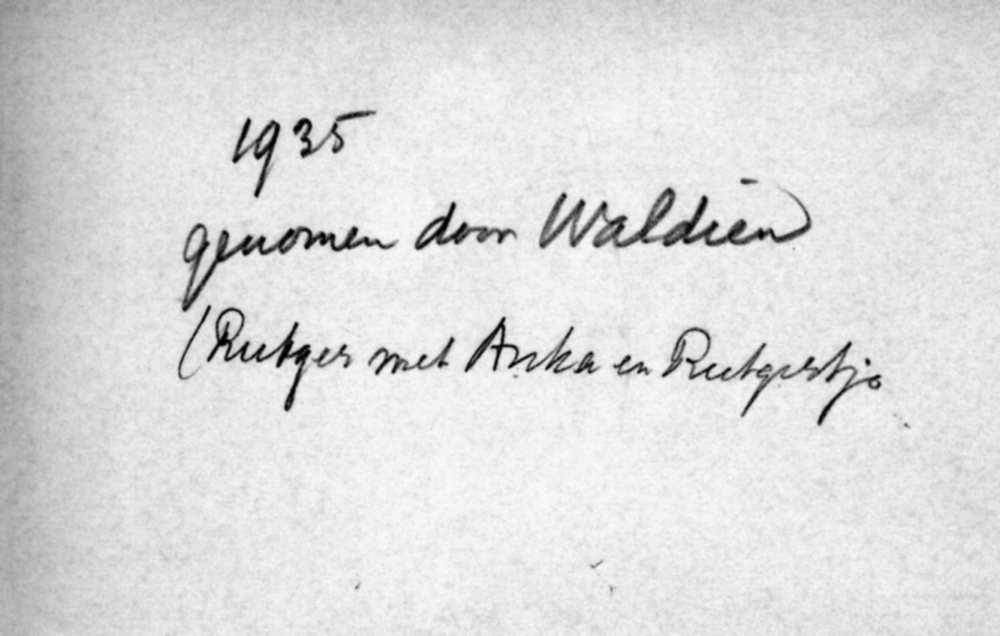 1935
genomen door Waldien
(Rutger met Anka en Rutgertje